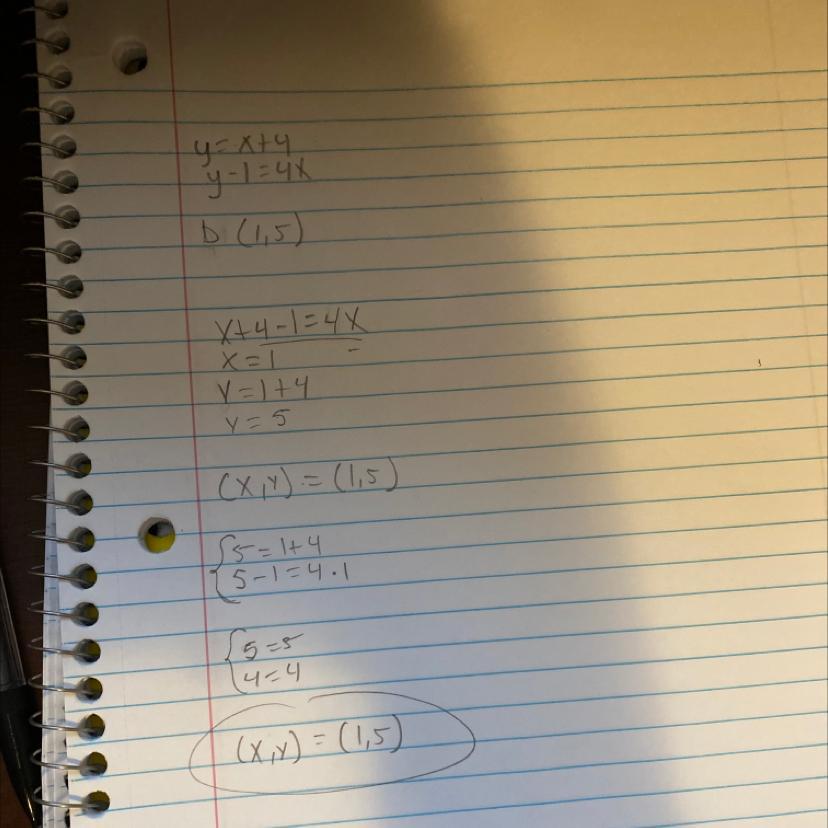 y=x+4
y-1=4x
b (1,5)
x+4-1=4x
x=1
y=1+4
y=5
(x,y)=(1,5)
{5=1+4
5-1=4·1
{5=5
4=4
(x,y)=(1,5)